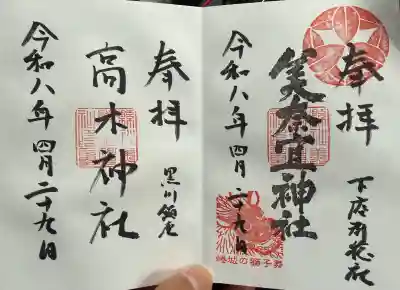 奉拝
美奈宜神社
令和八年四月二十九日
蜷城の獅子舞
奉拝
黒川
高木神社
令和八年四月二十九日